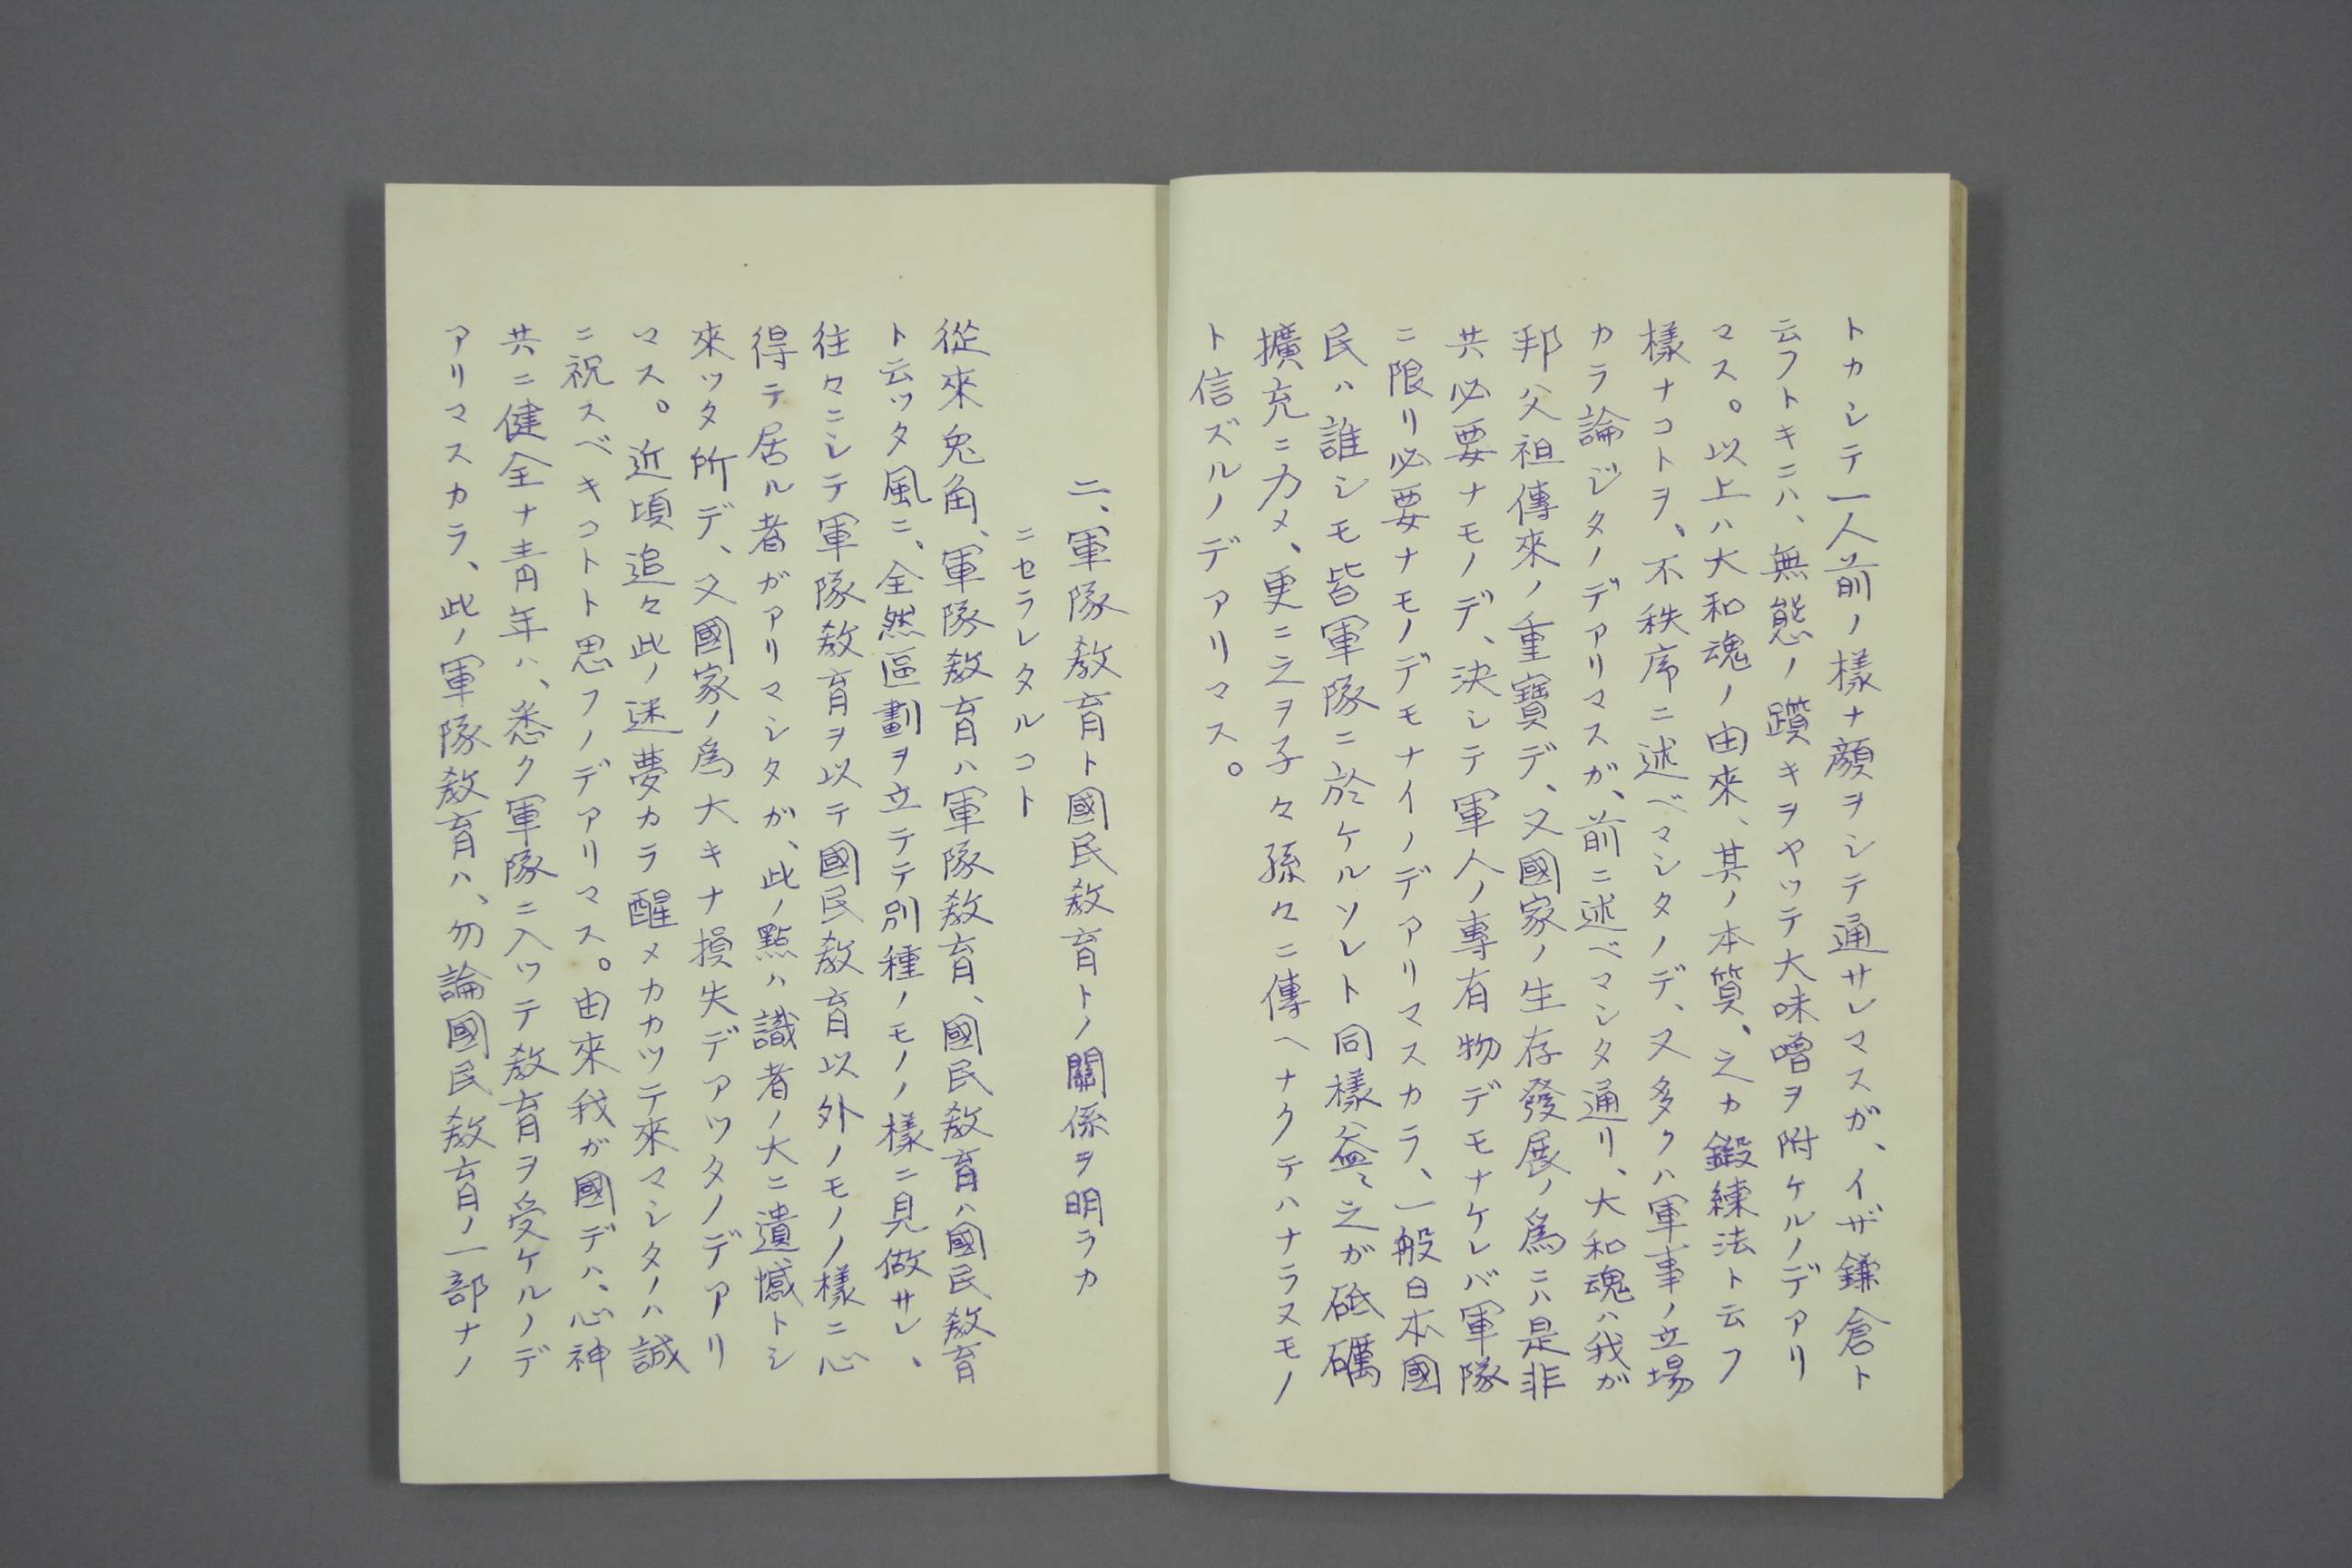 トカシテ一人前ノ樣ナ顔ヲシテ通サレマスガ、イザ鎌倉ト
云フトキニハ、無態ノ躓キヲヤッテ大味噌ヲ附ケルノデアリ
マス。以上ハ大和魂ノ由來、其ノ本質、之カ鍛練法ト云フ
樣ナコトヲ、不秩序ニ述ベマシタノデ、又多クハ軍事ノ立場
カラ論ジタノデアリマスガ、前ニ述ベマシタ通リ、大和魂ハ我ガ
邦父祖傳來ノ重寶デ、又國家ノ生存發展ノ爲ニハ是非
共必要ナモノデ、決シテ軍人ノ專有物デモナケレバ軍隊
ニ限リ必要ナモノデモナイノデアリマスカラ、一般日本國
民ハ誰シモ皆軍隊ニ於ケルソレト同樣益々之ガ砥礪
擴充ニ力メ、更ニ之ヲ子々孫々ニ傳ヘナクテハナラヌモノ
ト信ズルノデアリマス。
二、軍隊敎育ト國民敎育トノ關係ヲ明ラカ
ニセラレタルコト
從來兎角、軍隊敎育ハ軍隊敎育、國民敎育ハ國民敎育
ト云ッタ風ニ、全然區劃ヲ立テテ別種ノモノノ樣ニ見做サレ、
往々ニシテ軍隊敎育ヲ以テ國民敎育以外ノモノノ樣ニ心
得テ居ル者ガアリマシタガ、此ノ點ハ識者ノ大ニ遺憾トシ
來ッタ所デ、又國家ノ爲大キナ損失デアツタノデアリ
マス。近頃追々此ノ迷夢カラ醒メカカツテ來マシタノハ誠
ニ祝スベキコトト思フノデアリマス。由來我ガ國デハ、心神
共ニ健全ナ青年ハ、悉ク軍隊ニ入ツテ敎育ヲ受ケルノデ
アリマスカラ、此ノ軍隊敎育ハ、勿論國民敎育ノ一部ナノ